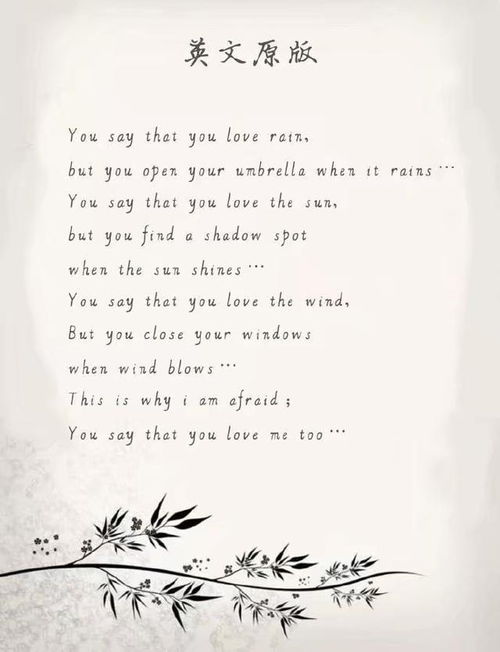 英文原版
You say that you love rain,
but you open your umbrella when it rains…
You say that you love the sun,
but you find a shadow spot
when the sun shines…
You say that you love the wind,
But you close your windows
when wind blows…
This is why i am afraid;
You say that you love me too…